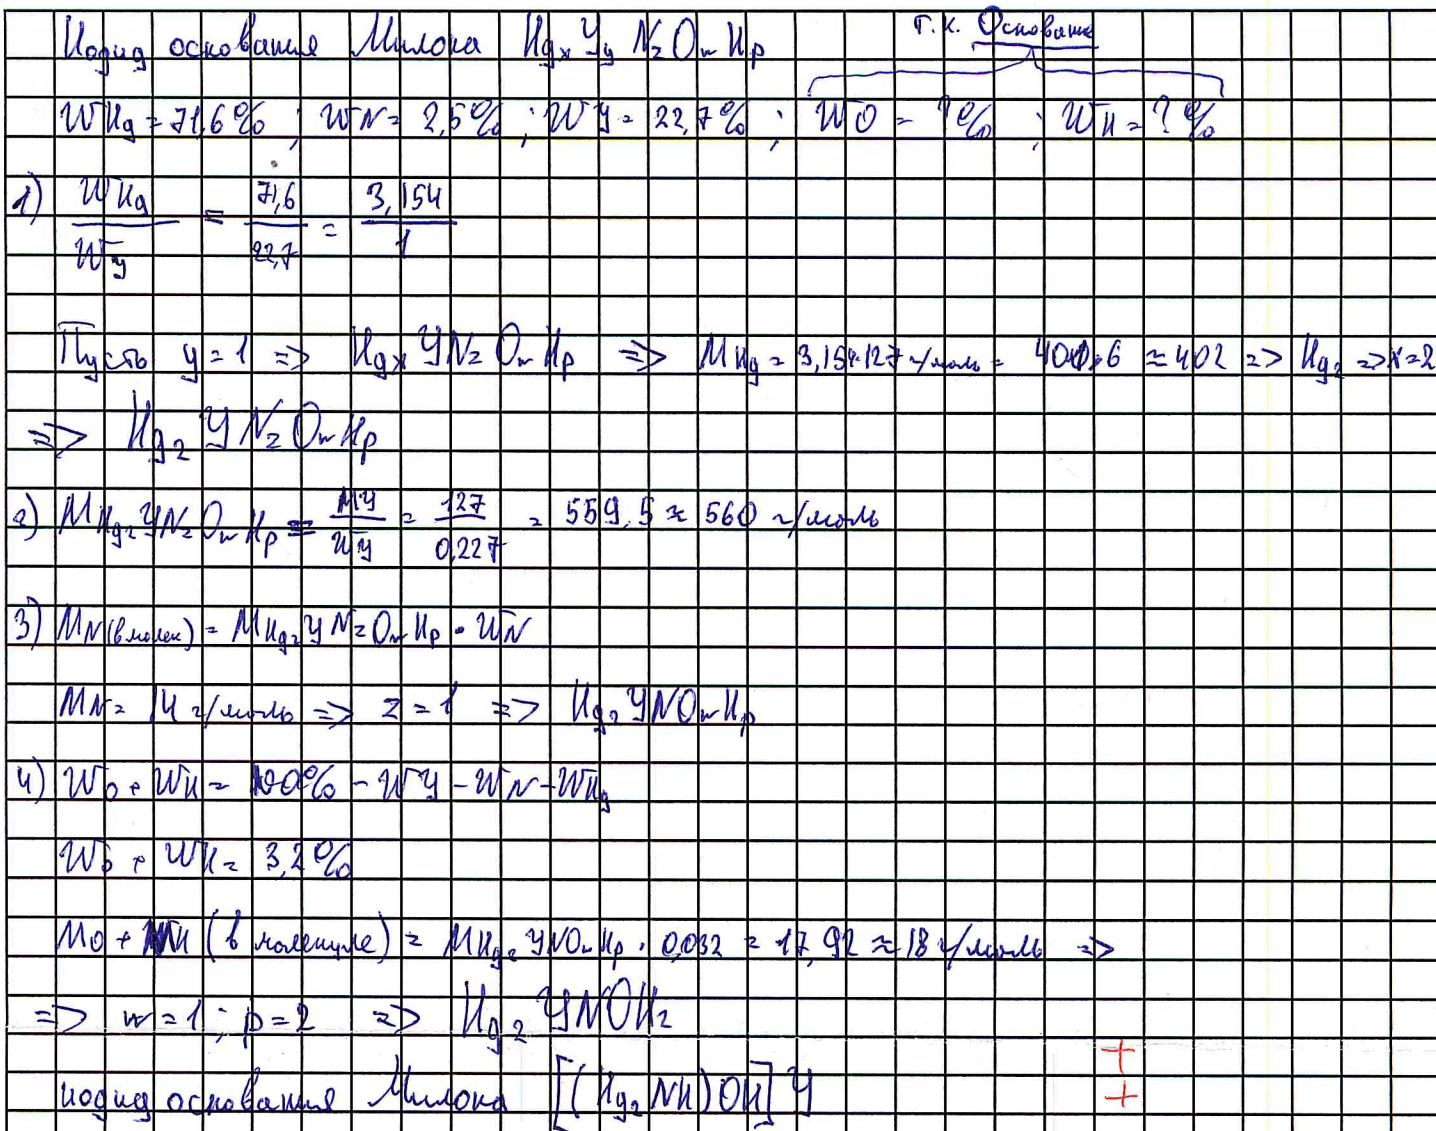 Иодид основания Милона HgxYyNzOwHp т.к. Основание
WHg = 71,6% ; WN = 2,5% ; WY = 22,7% ; WO = ?% ; WH = ?%
1) WHg / WY = 71,6 / 22,7 = 3,154 / 1
Пусть y = 1 => HgxYNzOwHp => MHg = 3,154·127 г/моль = 400,6 ≈ 402 => Hg2 => x=2
=> Hg2YNzOwHp
2) MHg2YNzOwHp = MY / WY = 127 / 0,227 = 559,5 ≈ 560 г/моль
3) MN(в молек) = MHg2YNzOwHp · WN
MN = 14 г/моль => z = 1 => Hg2YNOwHp
4) WO + WH = 100% - WY - WN - WHg
WO + WH = 3,2%
MO + MH (в молекуле) = MHg2YNOwHp · 0,032 = 17,92 ≈ 18 г/моль =>
=> w = 1 ; p = 2 => Hg2YNOH2
+
иодид основания Милона [(Hg2NH)OH]Y +